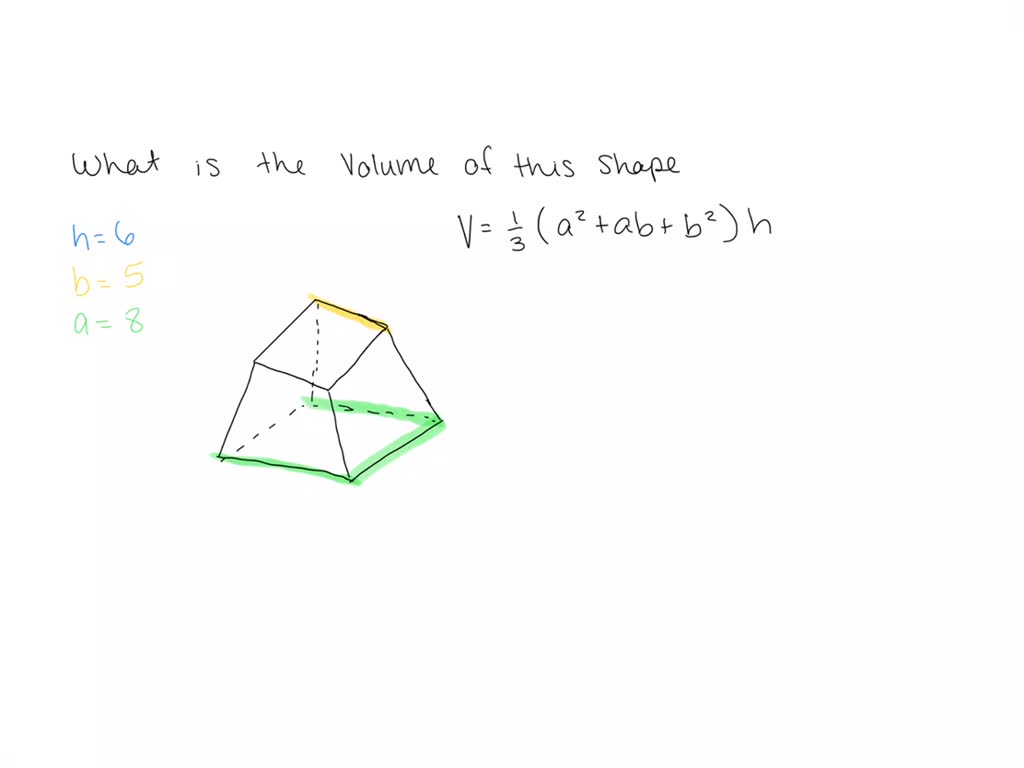 What is the Volume of this Shape
V = 1/3 (a² + ab + b²) h
h = 6
b = 5
a = 8